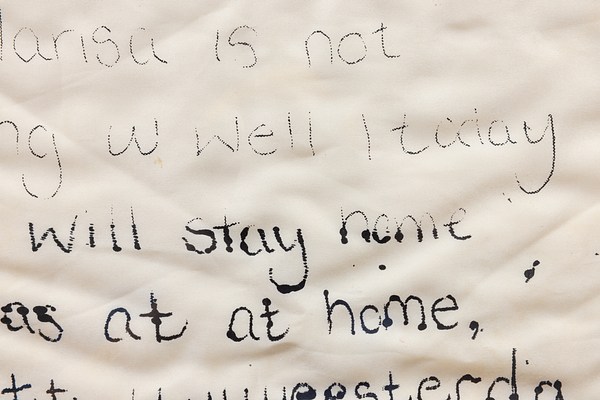 larisa is not
ng w well I today
will stay home
as at at home,